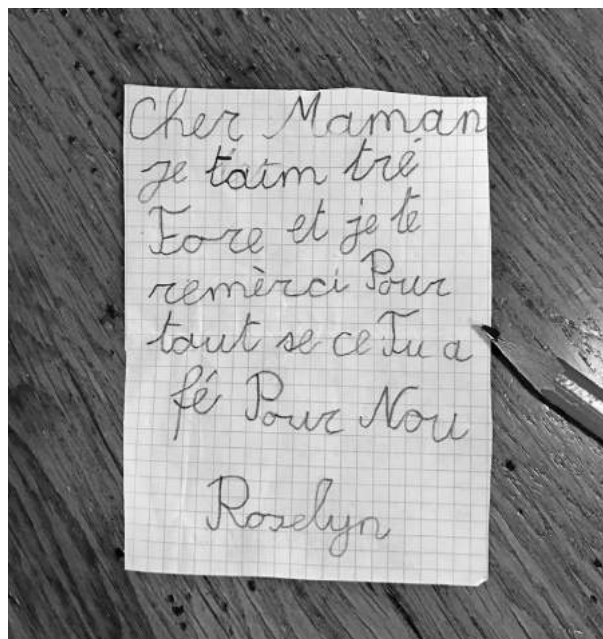 Cher Maman
je t'aim tré
Fore et je te
remèrci Pour
tout se ce Tu a
fé Pour Nou
Roselyn